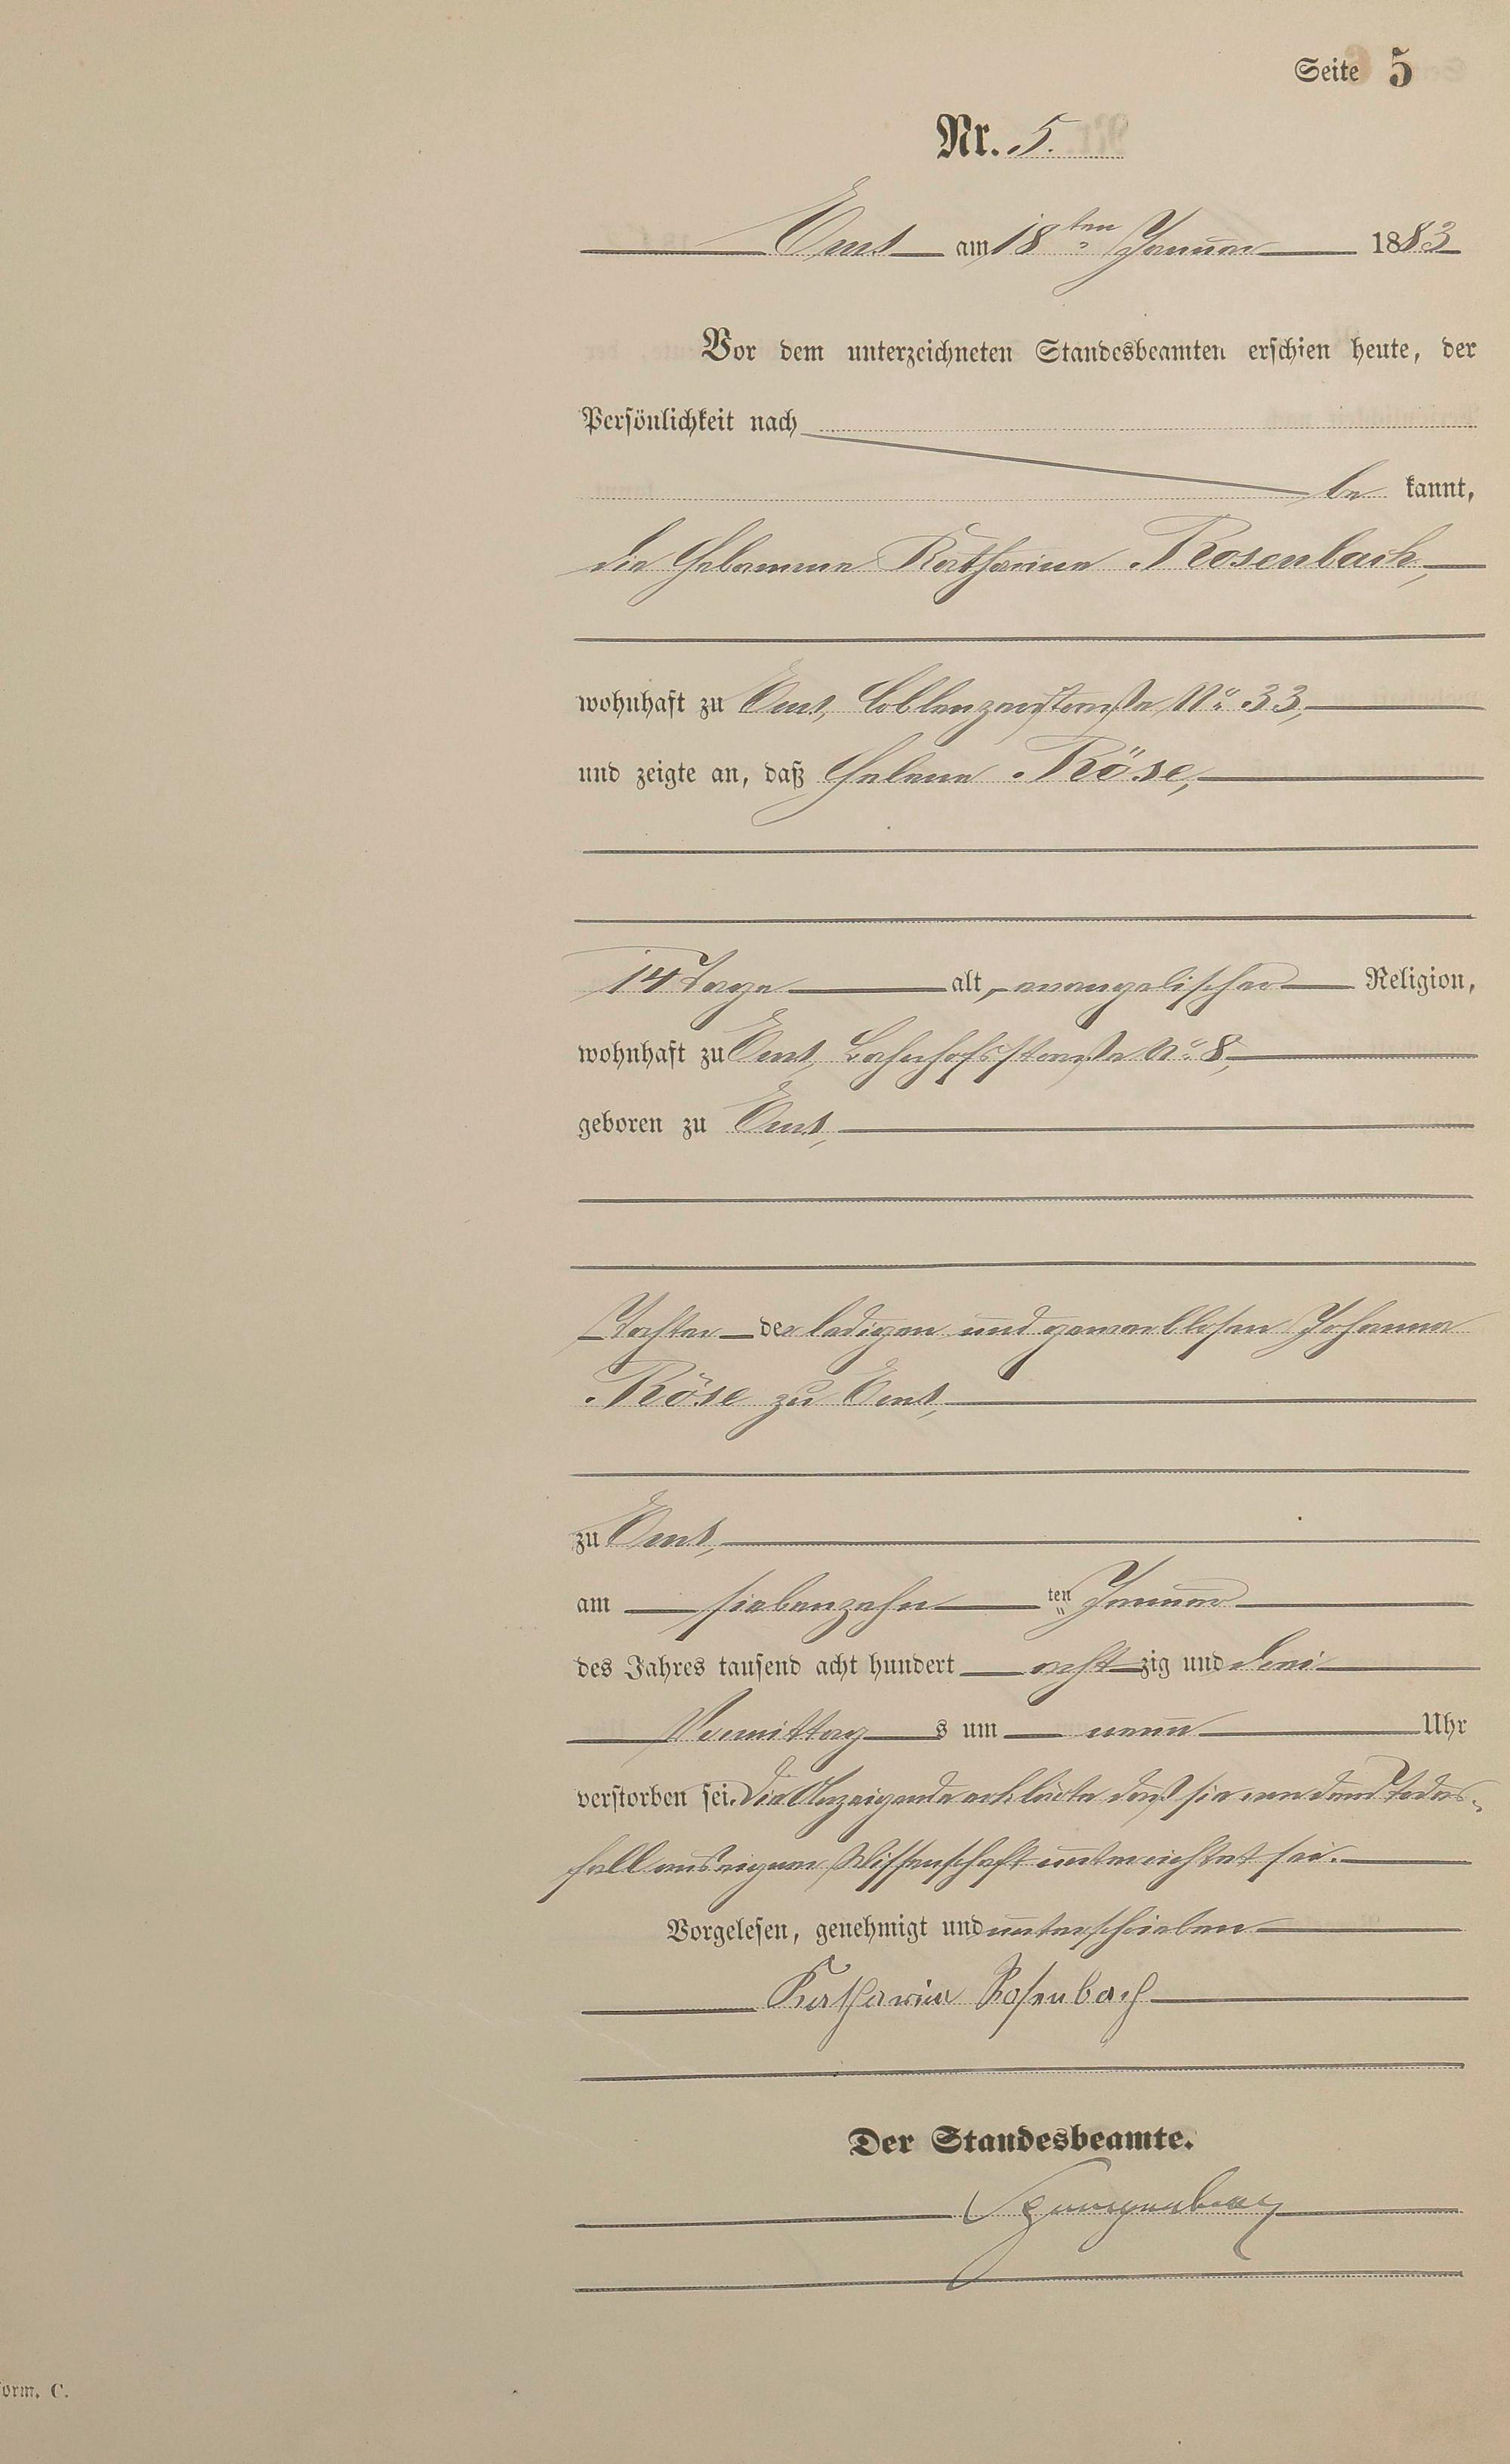 Seite 5
Nr. 5.
Ems am 18ten Januar 1883
Vor dem unterzeichneten Standesbeamten erschien heute, der
Persönlichkeit nach
be kannt,
die Hebamme Katharina Rosenbach,
wohnhaft zu Ems, Coblenzerstraße No. 33,
und zeigte an, daß Helene Röse,
14 Tage alt, evangelischer Religion,
wohnhaft zu Ems, Bahnhofsstraße No. 8,
geboren zu Ems,
Tochter der ledigen und gewerblosen Johanna
Röse zu Ems,
zu Ems,
am siebenzehn ten Januar
des Jahres tausend acht hundert acht zig und drei
Vormittag s um neun Uhr
verstorben sei. Die Anzeigende erklärte daß sie von dem Todes-
fall aus eigener Wissenschaft unterrichtet sei.
Vorgelesen, genehmigt und unterschrieben
Katharina Rosenbach
Der Standesbeamte.
Spangenberg
form. C.